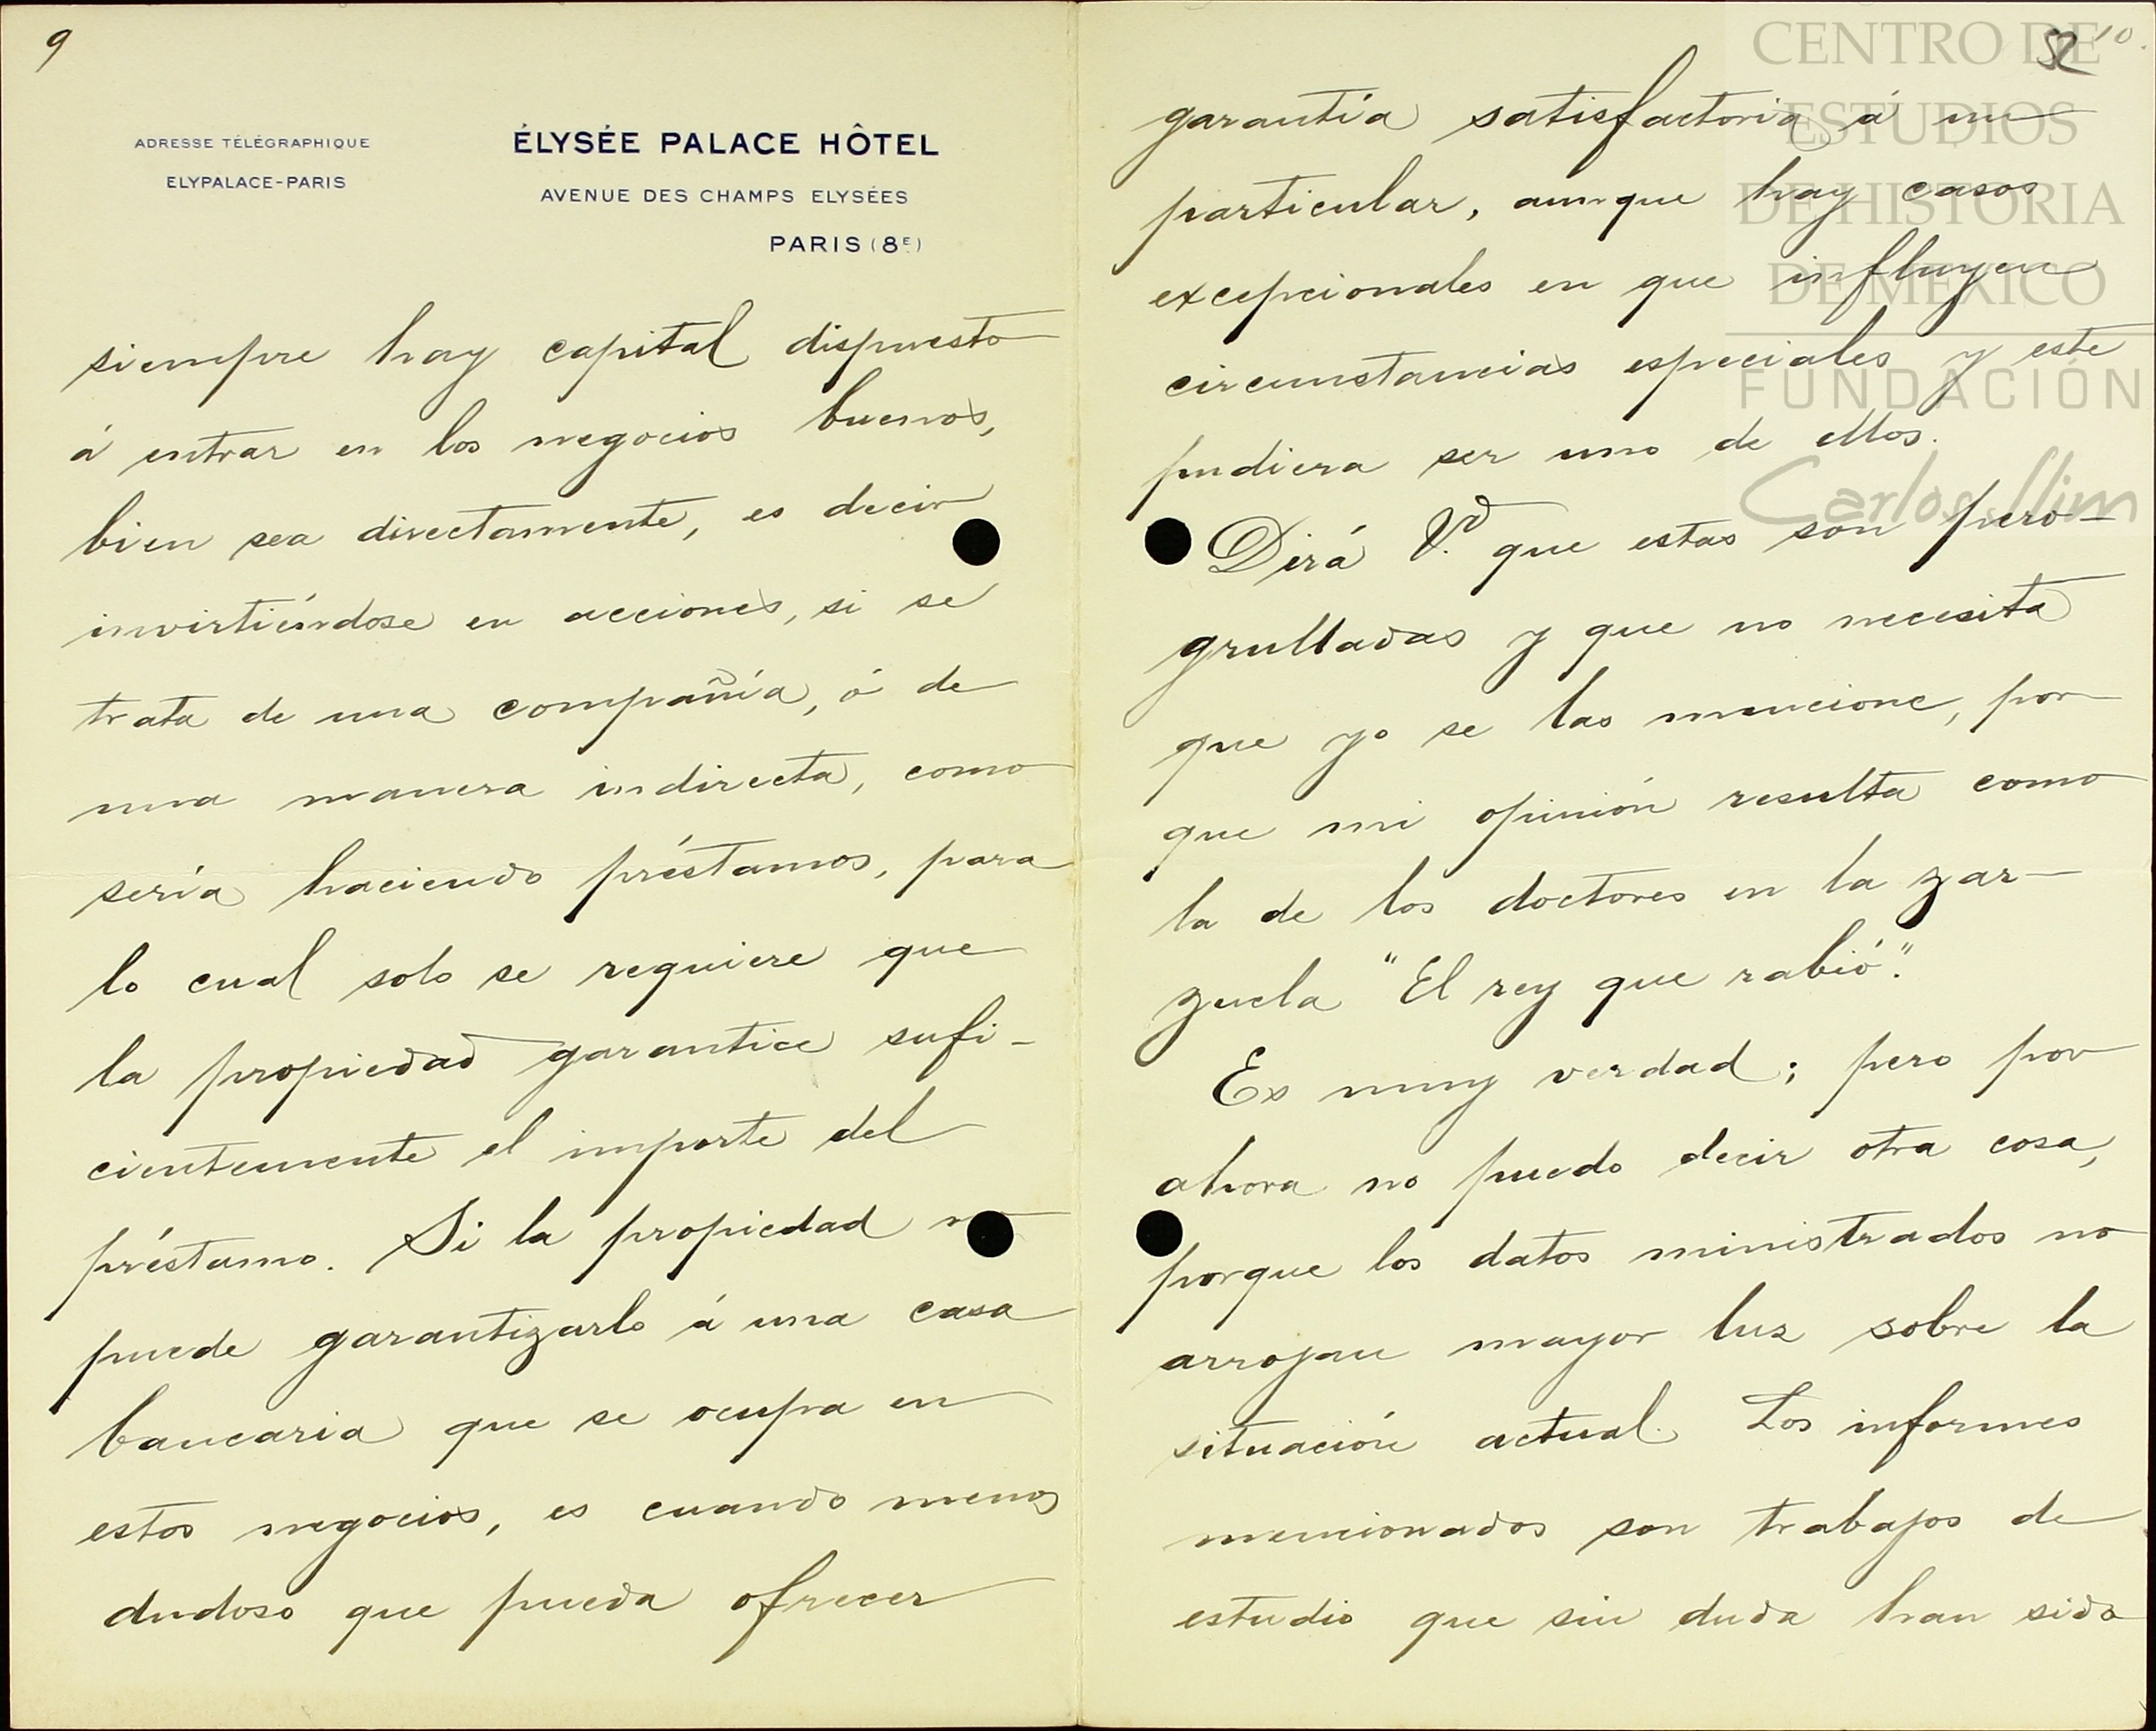 9
ADRESSE TÉLÉGRAPHIQUE
ELYPALACE-PARIS
ÉLYSÉE PALACE HÔTEL
AVENUE DES CHAMPS ELYSÉES
PARIS (8E)
siempre hay capital dispuesto
á entrar en los negocios buenos,
bien sea directamente, es decir
invirtiéndose en acciones, si se
trata de una compañía, ó de
una manera indirecta, como
sería haciendo préstamos, para
lo cual solo se requiere que
la propiedad garantice sufi-
cientemente el importe del
préstamo. Si la propiedad
puede garantizarlo á una casa
bancaria que se ocupa en
estos negocios, es cuando menos
dudoso que pueda ofrecer
10.
52
garantía satisfactoria á un
particular, aunque hay casos
excepcionales en que influyen
circunstancias especiales y este
pudiera ser uno de ellos.
Dirá Vd. que estas son pero-
grulladas y que no necesita
que yo se las mencione, por
que mi opinión resulta como
la de los doctores en la zar-
zuela "El rey que rabió".
Es muy verdad; pero por
ahora no puedo decir otra cosa,
porque los datos ministrados no
arrojan mayor luz sobre la
situación actual. Los informes
mencionados son trabajos de
estudio que sin duda han sido
CENTRO DE
ESTUDIOS
DE HISTORIA
DE MÉXICO
FUNDACIÓN
Carlos Slim